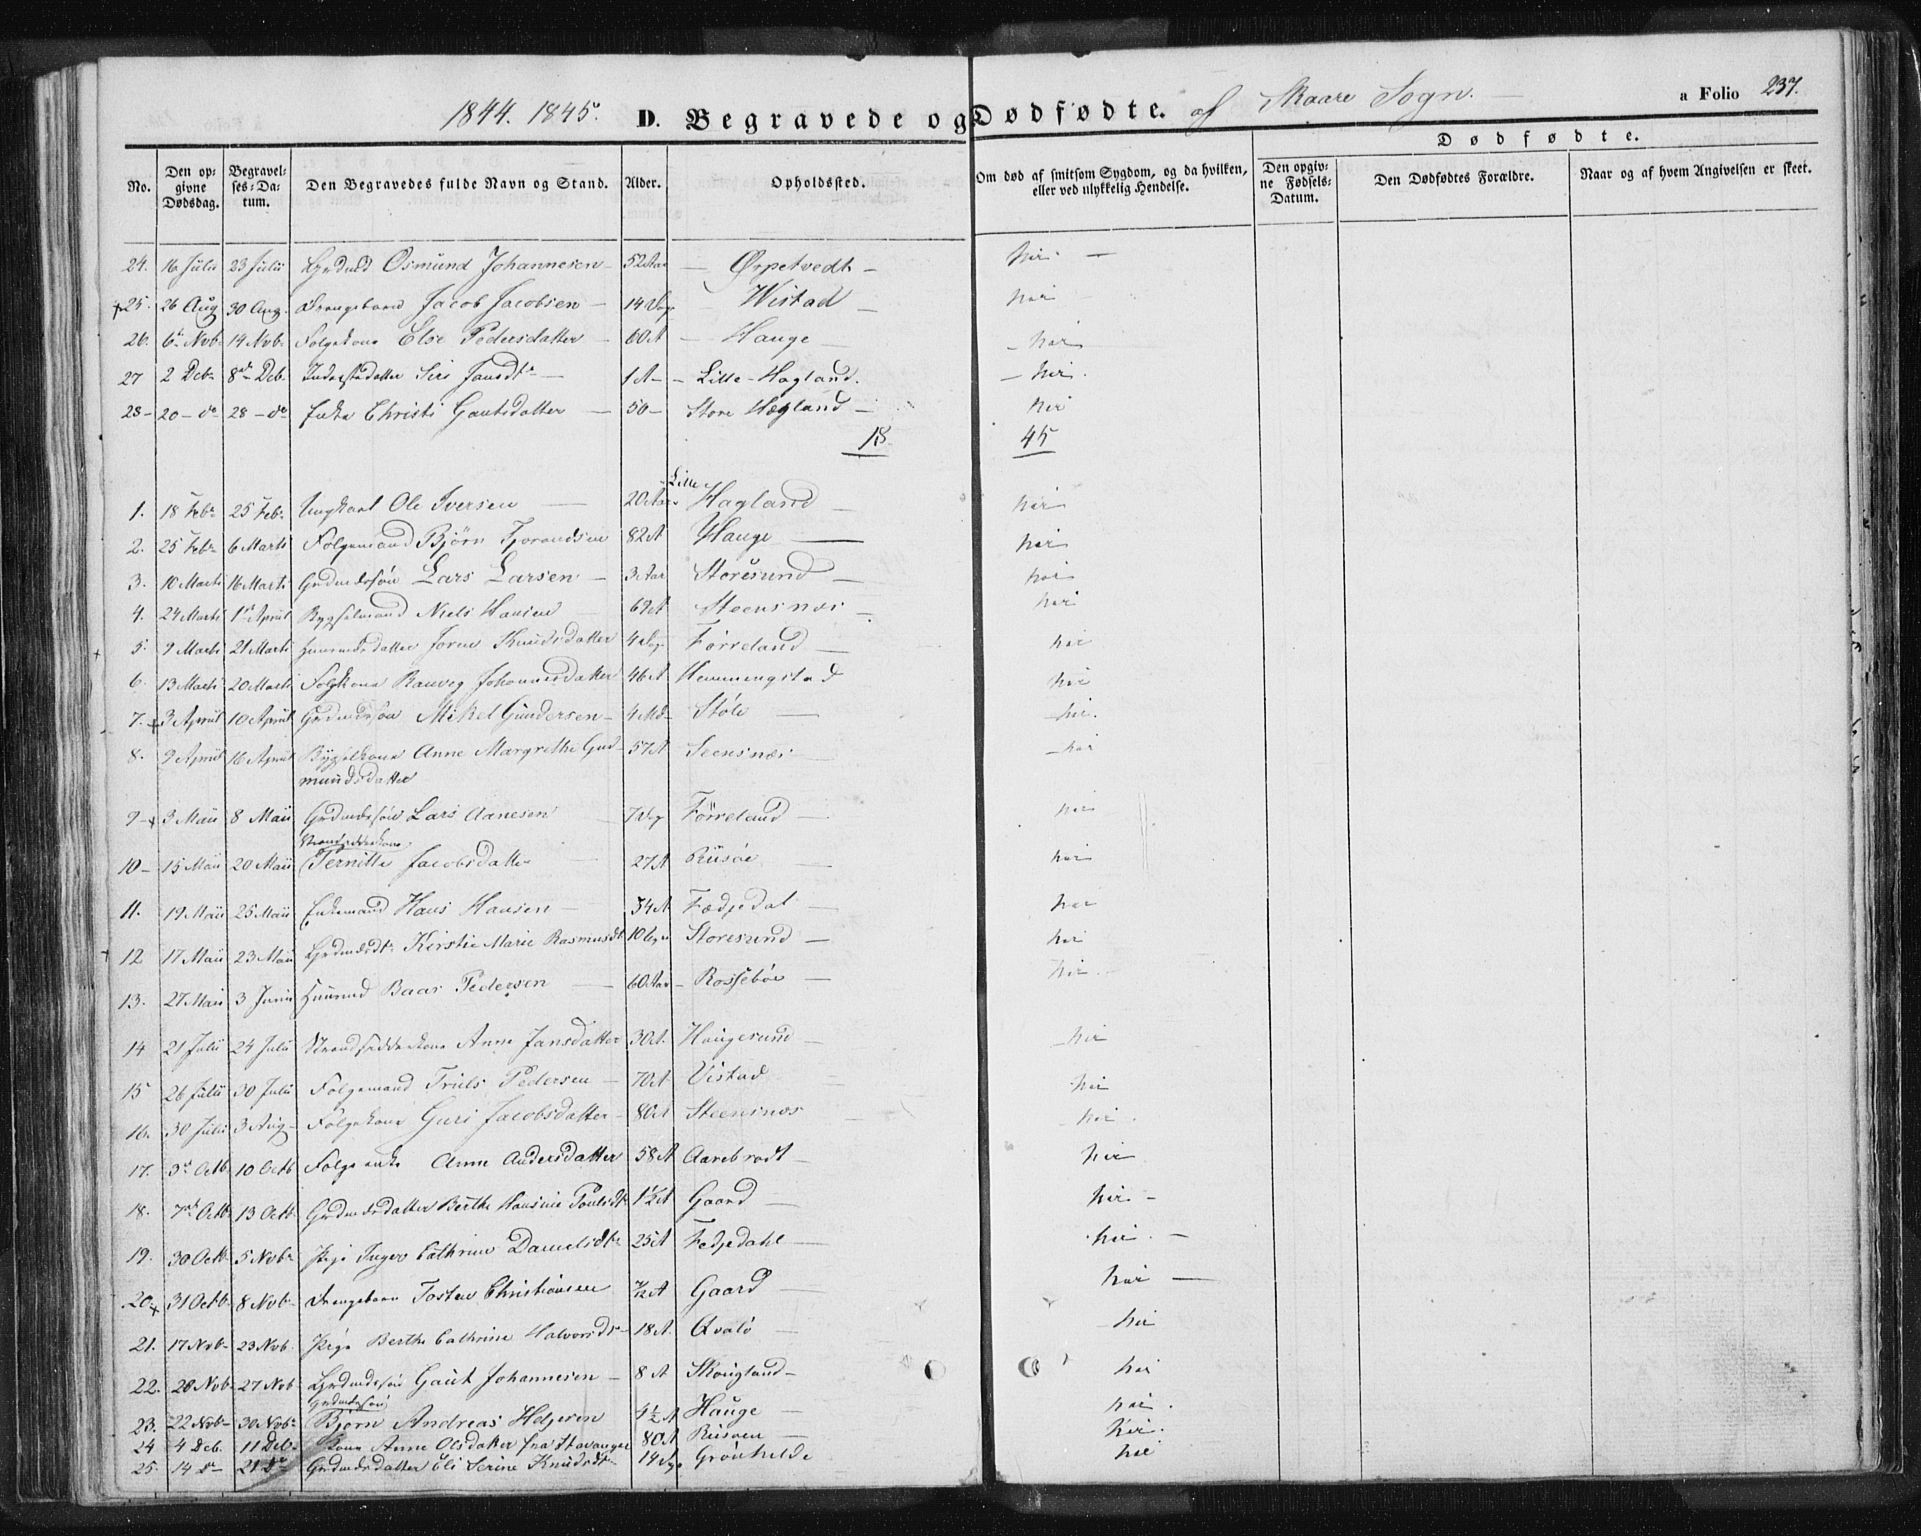 1844. 1845. D. Begravede og Dødfødte. af Skaare Sogn. a Folio 237.
Dødfødte.
No. Den opgivne Dødsdag. Begravelses-Datum. Den Begravedes fulde Navn og Stand. Alder. Opholdssted. Om død af smitsom Sygdom, og da hvilken, eller ved ulykkelig Hendelse. Den opgivne Fødsels-Datum. Den Dødfødtes Forældre. Naar og af hvem Angivelsen er skeet.
24. 16 Julii 23 Julii Grdmd Osmund Johannesen 52 Aar Ørpetvedt Nei
25. 26 Aug 30 Aug. Drengebarn Jacob Jacobsen 14 Dage Wistad Nei
26. 6te Nvbr 14 Nvbr Følgekone Else Pedersdatter 60 A Hauge Nei
27 2 Debr 8de Deb. Inderstdatter Siri Jansdtr 1 A Lille-Hagland. Nei
28 20 do 28 do Enke Christi Gautsdatter 50 Store Hagland Nei
18 45
1. 18 Febr 25 Febr Ungkarl Ole Iversen 20 Aar Lille Hagland nei
2. 25 Febr 6 Marti Følgemand Bjørn Tjorandsen 82 A Hauge nei
3. 10 Marti 16 Marti Grdmdssön Lars Larsen 3 Aar Storesund nei
4. 24 Marti 1te April Bygselmand Niels Hansen 69 A Steensnæs nei
5. 9 Marti 21 Marti Huusmdsdatter Joren Knudsdatter 4 Dage Førreland nei
6. 13 Marti 20 Marti Følgkone Ranveg Johannesdatter 46 A Hemmengstad nei
7. 3 April 10 April Grdmdssøn Mikel Gundersen 4 Md Støle nei.
8. 9 April 16 April Bygselkone Anne Margrethe Gud- 57 A Seensnæs nei
mundsdatter
9 3 Maii 8 Maii Grdmdssön Lars Aanesen 7 Dage Förreland nei
Strandsidderkone
10 15 Maii 20 Maii Pernille Jacobsdatter 27 A Risøe nei
11. 19 Maii 25 Maii Enkemand Hans Hansen 54 A Fædjedal nei
12 17 Maii 23 Maii Grdmdsdtr Kirstie Marie Rasmusdtr 10 Uger Storesund nei
13. 27 Maii 3 Junii Huusmd Baar Pedersen 60 Aar Rossebøe nei
14 21 Julii 24 Julii Strandsidderkone Anne Jansdatter 30 A. Haugesund nei
15 26 Julii 30 Julii Følgemand Truls Pedersen 70 A Vistad nei
16. 30 Julii 3 Aug Følgekone Guri Jacobsdatter 80 A Steensnæs nei.
17. 3d Octb 10 Octb Følgeenke Anne Andersdatter 58 A Aarebrodt nei
18. 7de Octb 13 Octb Grdmdsdatter Berthe Hansine Poulsdtr 1½ A Gaard nei
19. 30 Octb 5 Nvbr Pige Inger Cathrine Danielsdtr 25 A Fedjedahl nei.
20 31 Octb 8 Nvbr Drengebarn Tosten Christiansen 7/12 A Gaard nei
21. 17 Nvbr 23 Nvb. Pige Berthe Cathrine Halvorsdtr 18 A. Qvalö nei
22. 20 Nvb 27 Nvb Grdmdssön Gaut Johannesen 8 A Skougland nei
Grdmdssön
23. 22 Nvbr 30 Nvbr Bjørn Andreas Helgesen 4½ A Hauge nei.
24 4 Deb. 11 Deb. Kone Anne Olsdatter fra Stavanger 80 A Risøen nei.
25. 14 D 21 Do Grdmdsdatter Eli Serine Knudsdtr 14 Dage Grönhelde nei